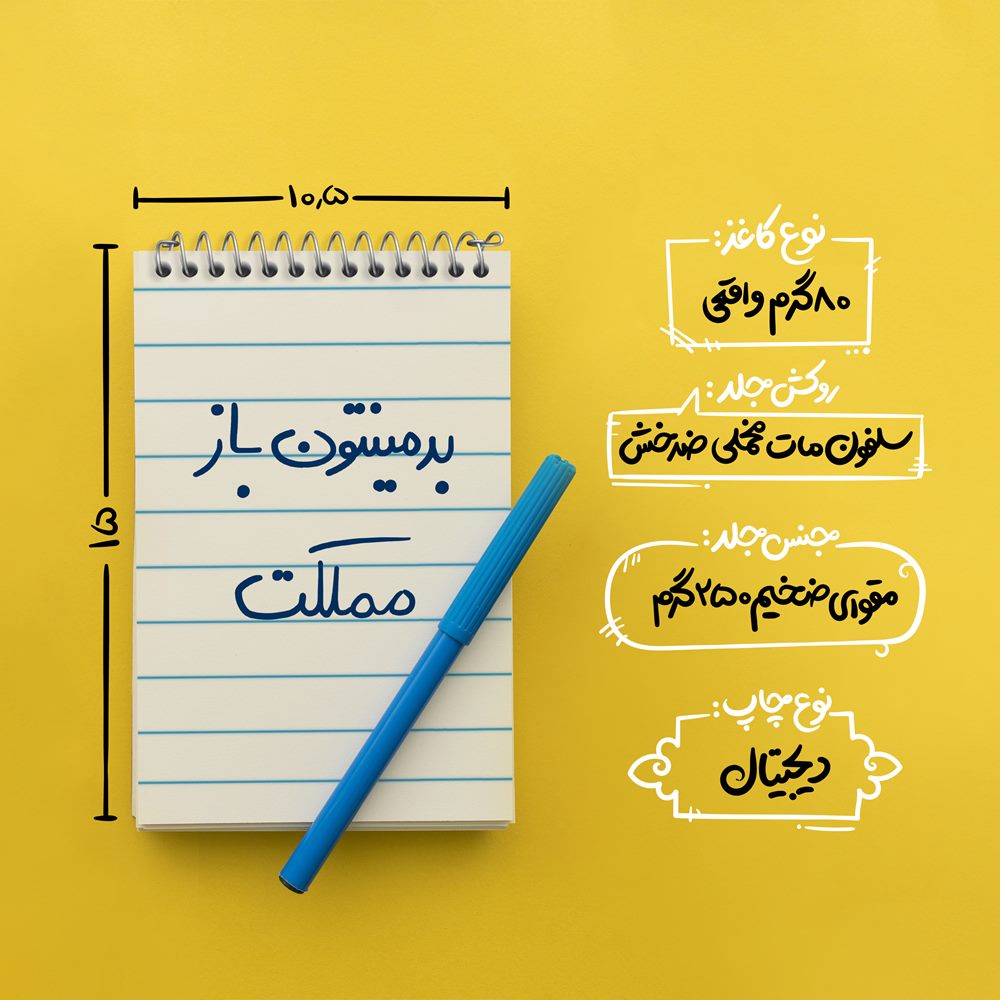 ۱۰,۵
۱۵
بدمینتون باز
مملکت
نوع کاغذ:
۸۰گرم واقعی
روکش جلد:
سلفون مات مخملی ضدخش
جنس جلد:
مقوای ضخیم ۲۵۰گرم
نوع چاپ:
دیجیتال